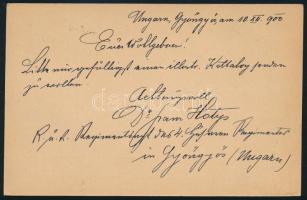 Ungarn, Gyöngyös, am 10. XII. 900
Euer Wohlgeboren!
Bitte mir gefälligst einen illustr. Katalog senden
zu wollen.
Achtungsvoll
Dr.
K. u. k. Regimentsarzt des 4. Husaren Regimentes
in Gyöngyös (Ungarn)